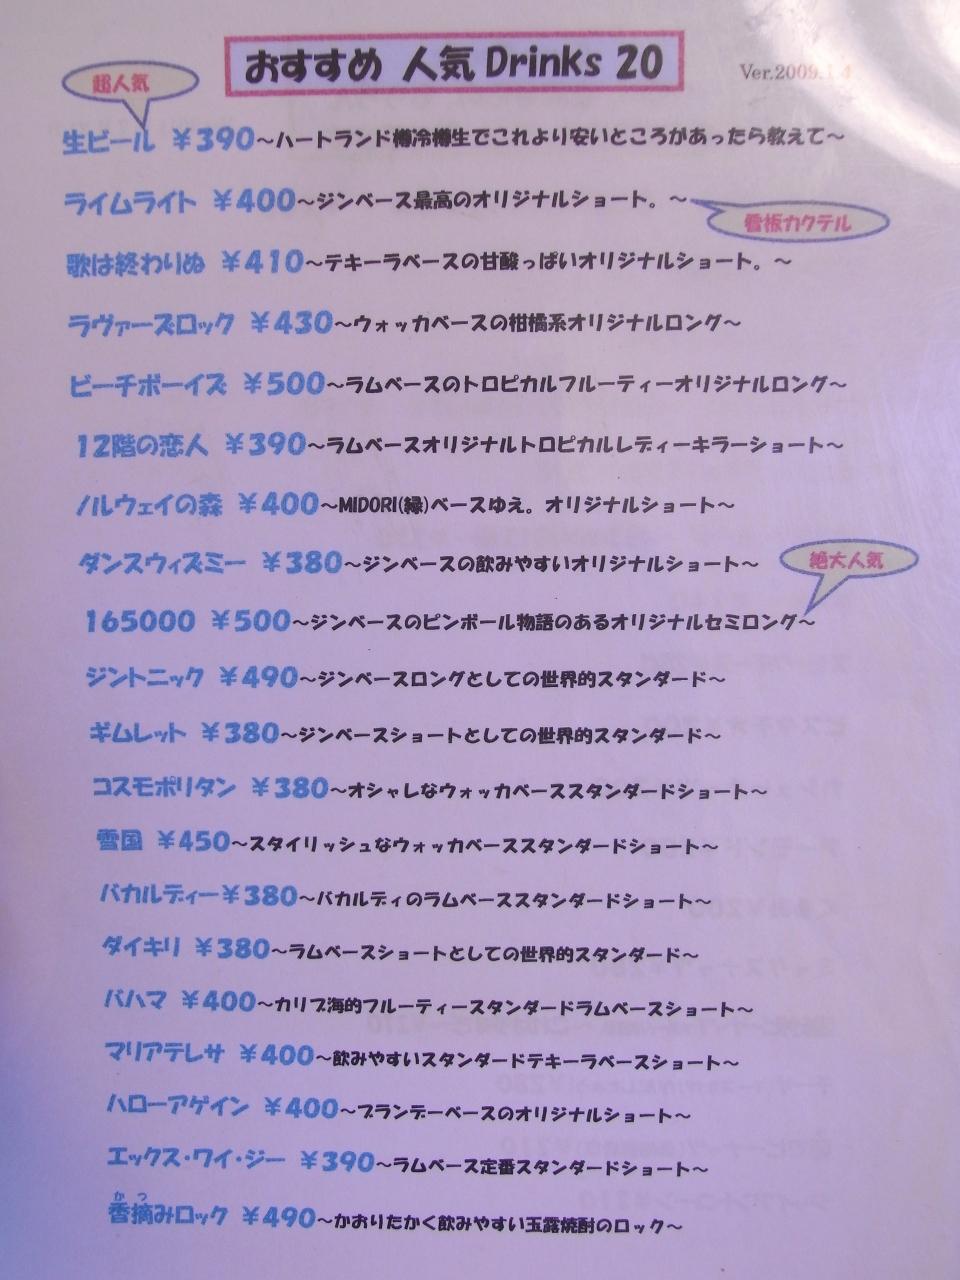 おすすめ 人気 Drinks 20
Ver.2009.1.4
超人気
生ビール ￥390～ハートランド樽冷樽生でこれより安いところがあったら教えて～
ライムライト ￥400～ジンベース最高のオリジナルショート。～
看板カクテル
歌は終わりぬ ￥410～テキーラベースの甘酸っぱいオリジナルショート。～
ラヴァーズロック ￥430～ウォッカベースの柑橘系オリジナルロング～
ビーチボーイズ ￥500～ラムベースのトロピカルフルーティーオリジナルロング～
12階の恋人 ￥390～ラムベースオリジナルトロピカルレディーキラーショート～
ノルウェイの森 ￥400～MIDORI(緑)ベースゆえ。オリジナルショート～
ダンスウィズミー ￥380～ジンベースの飲みやすいオリジナルショート～
絶大人気
165000 ￥500～ジンベースのピンボール物語のあるオリジナルセミロング～
ジントニック ￥490～ジンベースロングとしての世界的スタンダード～
ギムレット ￥380～ジンベースショートとしての世界的スタンダード～
コスモポリタン ￥380～オシャレなウォッカベーススタンダードショート～
雪国 ￥450～スタイリッシュなウォッカベーススタンダードショート～
バカルディー￥380～バカルディのラムベーススタンダードショート～
ダイキリ ￥380～ラムベースショートとしての世界的スタンダード～
バハマ ￥400～カリブ海的フルーティースタンダードラムベースショート～
マリアテレサ ￥400～飲みやすいスタンダードテキーラベースショート～
ハローアゲイン ￥400～ブランデーベースのオリジナルショート～
エックス・ワイ・ジー ￥390～ラムベース定番スタンダードショート～
かつ
香摘みロック ￥490～かおりたかく飲みやすい玉露焼酎のロック～